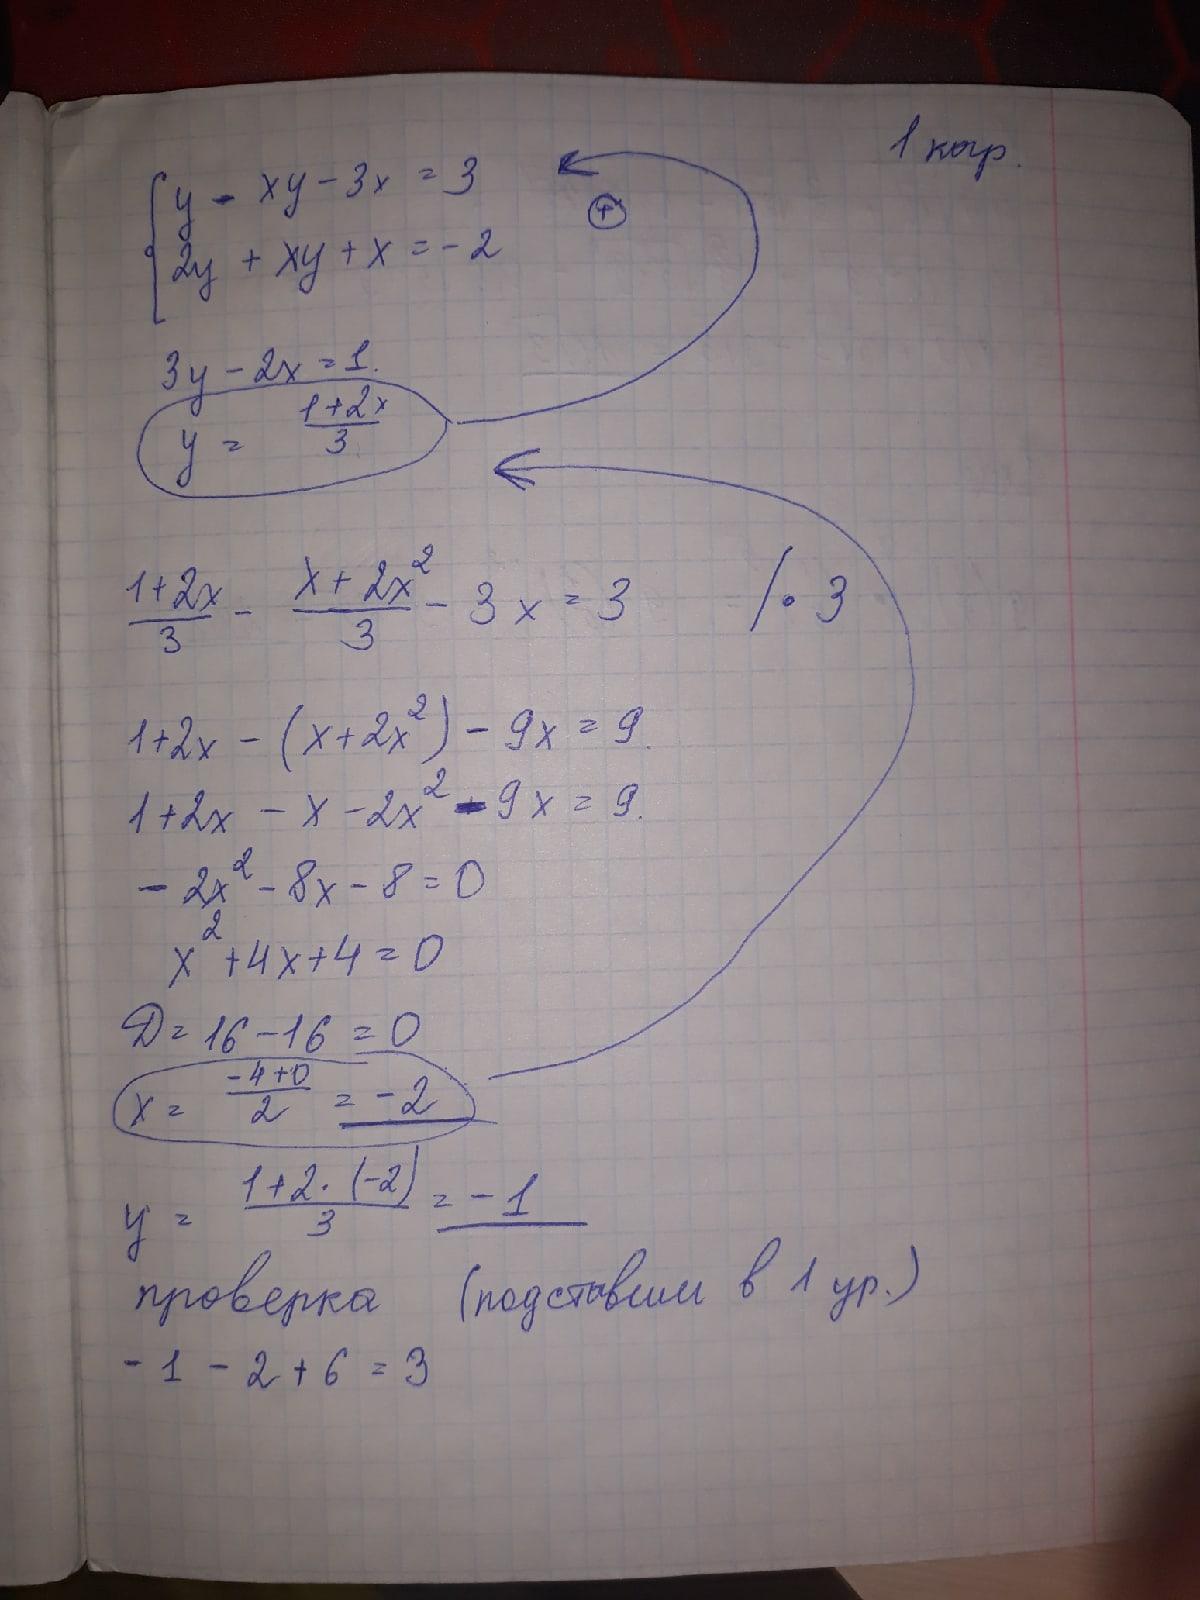 1 кор.
y - xy - 3x = 3
2y + xy + x = -2
+
3y - 2x = 1.
y = (1+2x)/3
(1+2x)/3 - (x+2x²)/3 - 3x = 3 /·3
1+2x - (x+2x²) - 9x = 9.
1+2x - x - 2x² - 9x = 9.
-2x² - 8x - 8 = 0
x² + 4x + 4 = 0
D = 16 - 16 = 0
x = (-4+0)/2 = -2
y = (1+2·(-2))/3 = -1
проверка (подставим в 1 ур.)
-1 - 2 + 6 = 3